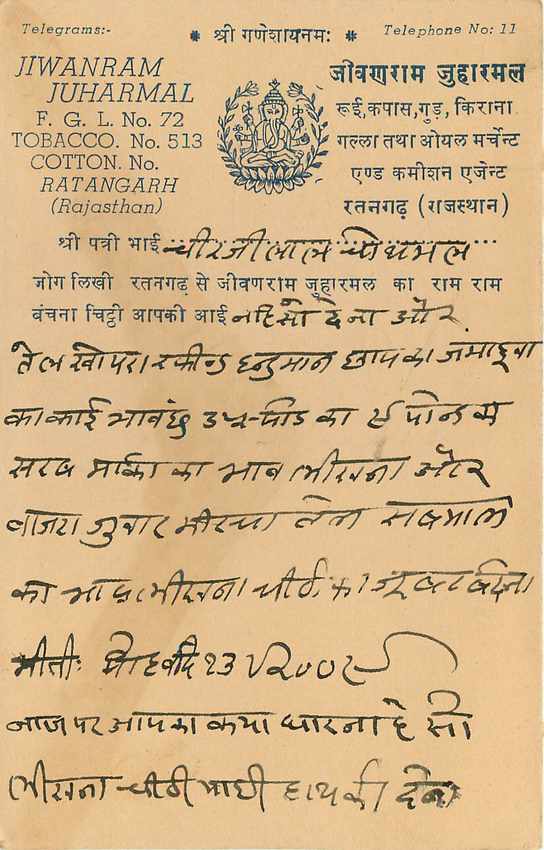 Telegrams:-
* श्री गणेशायनमः *
Telephone No: 11
JIWANRAM
JUHARMAL
F. G. L. No. 72
TOBACCO. No. 513
COTTON. No.
RATANGARH
(Rajasthan)
जीवणराम जुहारमल
रूई,कपास,गुड़, किराना
गल्ला तथा ओयल मर्चेन्ट
एण्ड कमीशन एजेन्ट
रतनगढ़ (राजस्थान)
श्री पत्री भाई चीरजीलाल चोथमल
जोग लिखी रतनगढ़ से जीवणराम जुहारमल का राम राम
बंचना चिट्ठी आपकी आई नहि सो देना ओर
तेल खोपरा रफीन्ड हनुमान छाप का
का काई भाव छ का पोन्ड का
मार्का का भाव लीखना ओर
बाजरा गुवार तेल सब माल
का भाव लीखना चीठी का
मीती: बदि १३ २००९
आपका क्या धारना हे सो
लीखना चीठी पाछी हाथ की देना